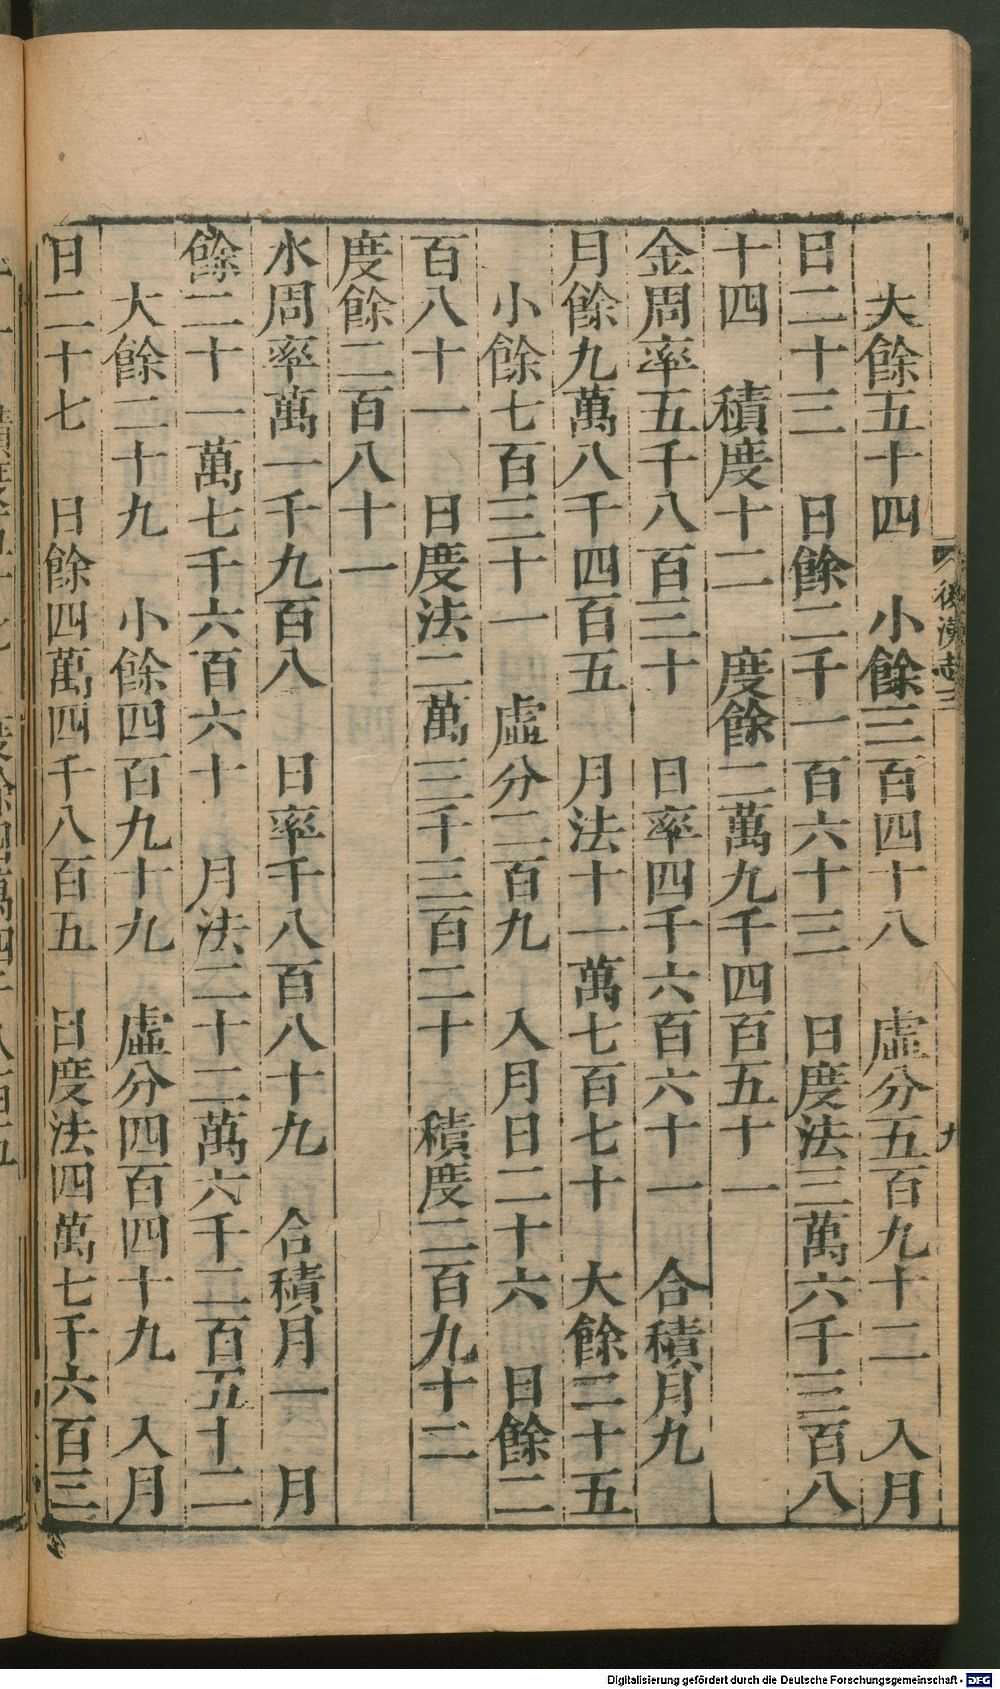 大餘五十四　小餘三百四十八　虛分五百九十二　入月
日二十三　日餘二千一百六十三　日度法三萬六千三百八
十四　積度十二　度餘二萬九千四百五十一
金周率五千八百三十　日率四千六百六十一　合積月九
月餘九萬八千四百五　月法十一萬七百七十　大餘二十五
小餘七百三十一　虛分二百九　入月日二十六　日餘二
百八十一　日度法二萬三千三百二十　積度二百九十二
度餘二百八十一
水周率萬一千九百八　日率千八百八十九　合積月一　月
餘二十一萬七千六百六十　月法二十二萬六千二百五十二
大餘二十九　小餘四百九十九　虛分四百四十九　入月
日二十七　日餘四萬四千八百五　日度法四萬七千六百三
後漢志三
九
Digitalisierung gefördert durch die Deutsche Forschungsgemeinschaft - DFG